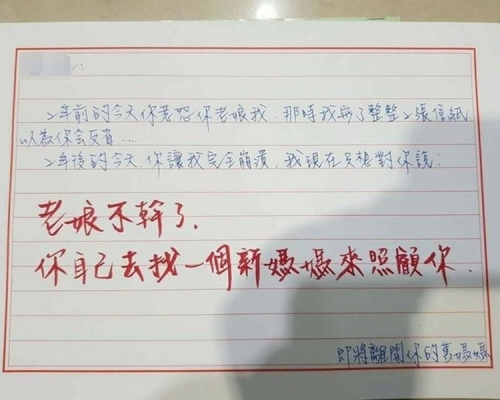 2年前的今天你惹怒你老娘我,那時我寫了整整2張信紙
以為你會反省.....
2年後的今天,你讓我完全崩潰,我現在只想對你說:
老娘不幹了.
你自己去找一個新媽媽來照顧你.
即將離開你的舊媽媽